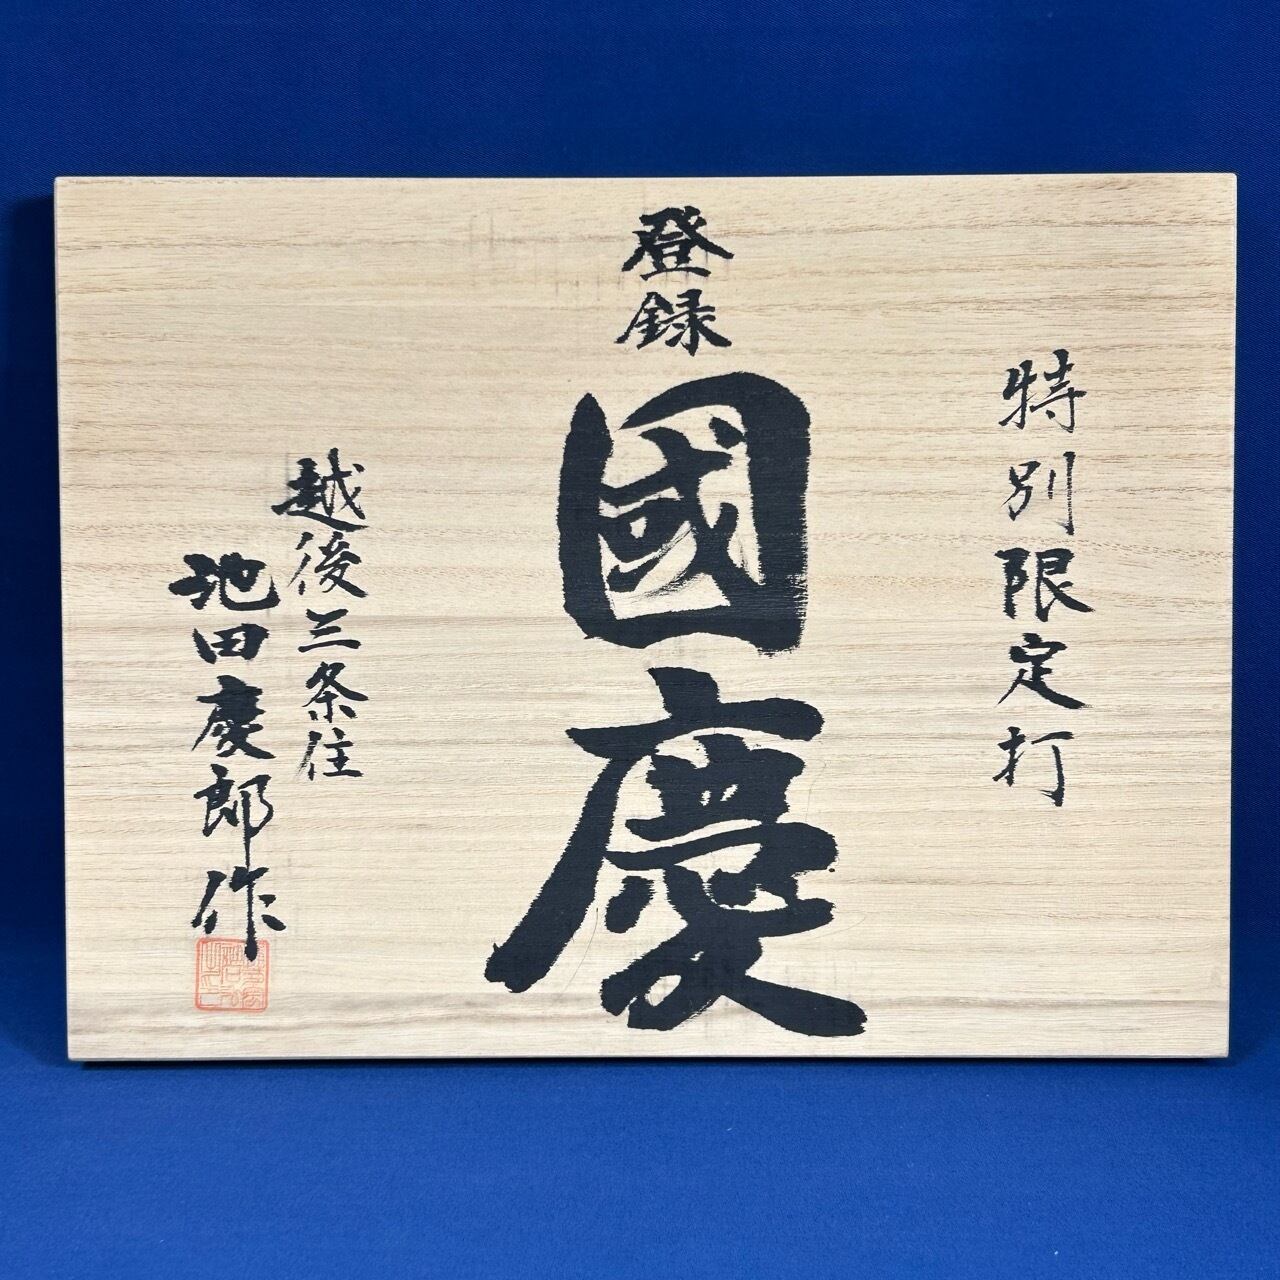 特別限定打
登録
國慶
越後三条住
池田慶郎作